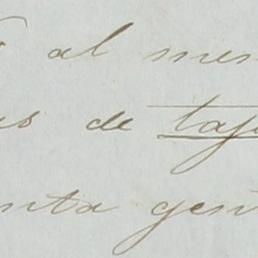 al men
as de taja
nta gen